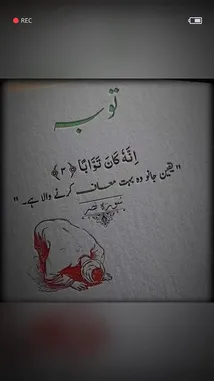 REC
توبہ
اِنَّهٗ كَانَ تَوَّابًا ﴿٣﴾
"یقین جانو وہ بہت معاف کرنے والا ہے۔"
سورۃ نصر